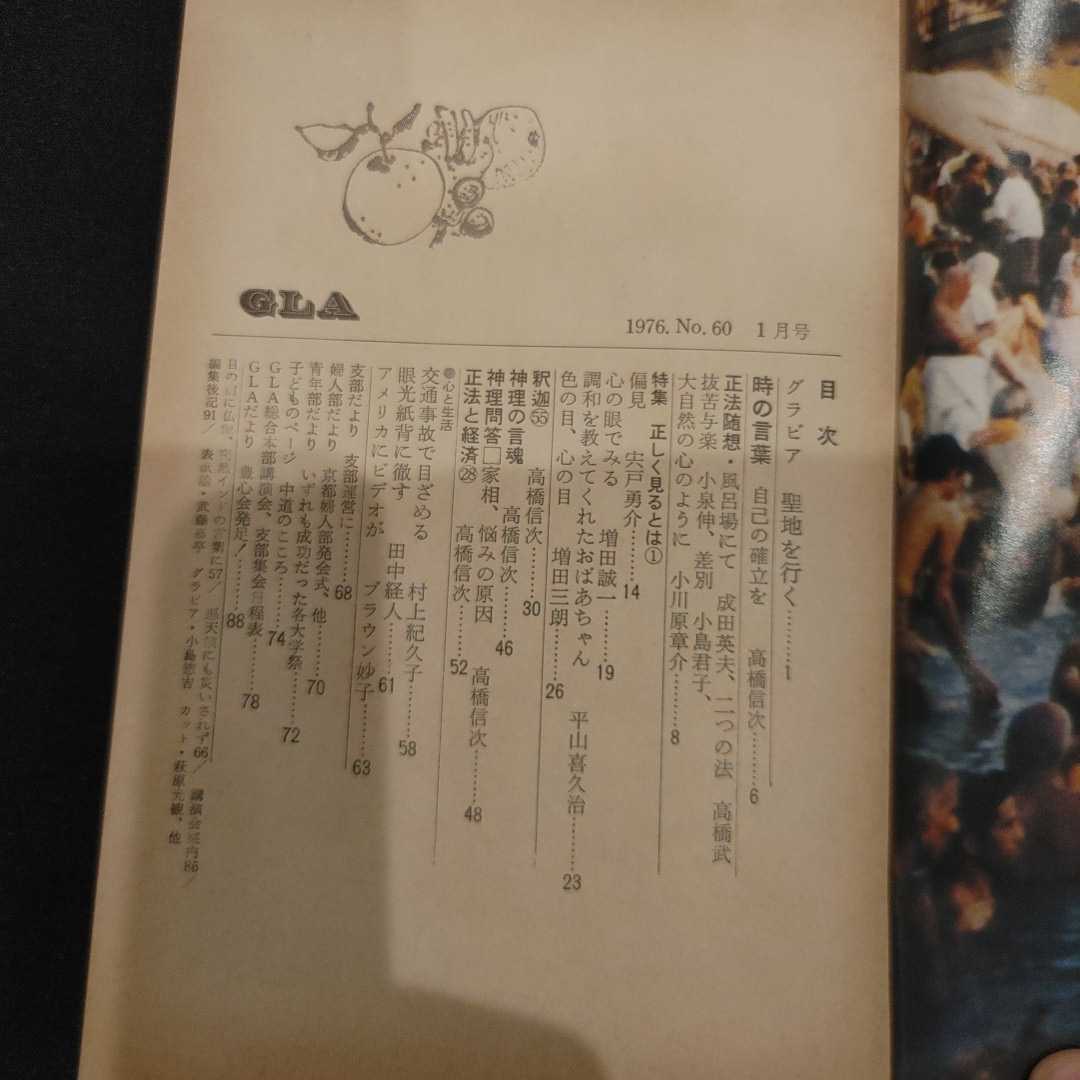 GLA
1976. No. 60 1月号
目次
グラビア 聖地を行く………1
時の言葉 自己の確立を 高橋信次………6
正法随想・風呂場にて 成田英夫、二つの法 高橋武
抜苦与楽 小泉伸、差別 小島君子、
大自然の心のように 小川原章介………8
特集 正しく見るとは①
偏見 宍戸勇介………14
心の眼でみる 増田誠一………19
調和を教えてくれたおばあちゃん 平山喜久治………23
色の目、心の目 増田三朗………26
釈迦㊺ 高橋信次………30
神理の言魂 高橋信次………46
神理問答□家相、悩みの原因 高橋信次………48
正法と経済㉘ 高橋信次………52
●心と生活
交通事故で目ざめる 村上紀久子………58
眼光紙背に徹す 田中経人………61
アメリカにビデオが ブラウン妙子………63
支部だより 支部運営に………68
婦人部だより 京都婦人部発会式、他………70
青年部だより いずれも成功だった各大学祭………72
子どものページ 中道のこころ………74
GLA総合本部講演会、支部集会日程表………78
GLAだより 豊心会発足!………88
目の前に仏 インドの言葉に57/ 天 にも災いされず66/ 講演会案内86/
編集後記91/ 表紙絵・武藤 亭 グラビア・小島 吉 カット・萩原光観、他